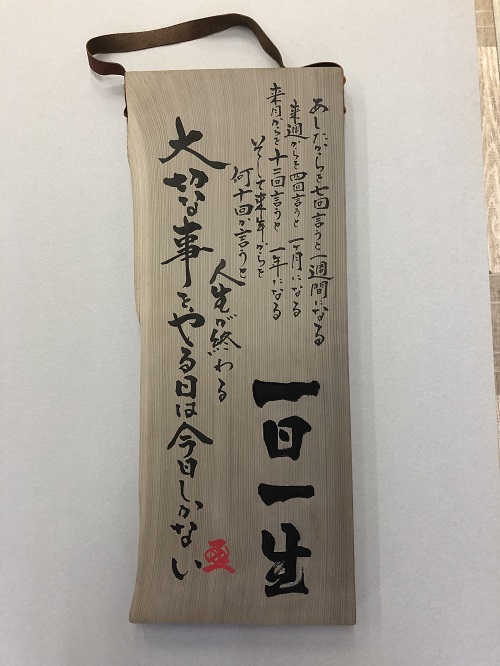 あしたからを七回言うと一週間になる
来週からを四回言うと一ヶ月になる
来月からを十二回言うと一年になる
そして来年からを
何十回か言うと
人生が終わる
一日一生
大切な事をやる日は今日しかない